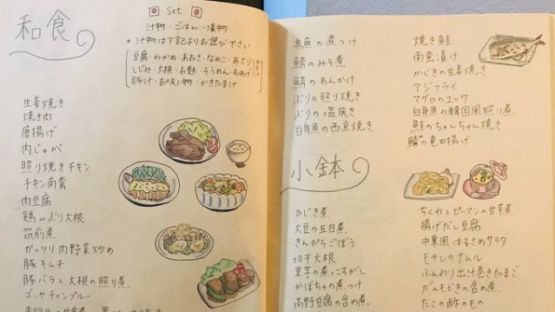 和食
Set
汁物・ごはん・漬物
*汁物は下記よりお選び下さい
豆腐・わかめ・あおさ・なめこ・あさり
しじみ・大根・お麩・そうめん・おあげ
豚汁・お吸い物・かきたま汁
生姜焼き
焼き肉
唐揚げ
肉じゃが
照り焼きチキン
チキン南蛮
肉豆腐
鶏のぶり大根
筑前煮
ガッツリ肉野菜炒め
豚キムチ
豚バラと大根の照り煮
ゴーヤチャンプルー
赤魚の煮つけ
鯖のみそ煮
鯖のあんかけ
ぶりの照り焼き
ぶりの塩焼き
白身魚の西京焼き
焼き鮭
南蛮漬け
かじきの生姜焼き
アジフライ
マグロのユッケ
白身魚の韓国風照り煮
鮭のちゃんちゃん焼き
鯖の竜田揚げ
小鉢
かじき煮
大豆の五目煮
きんぴらごぼう
切干大根
里芋の煮ころがし
かぼちゃの煮つけ
高野豆腐の含め煮
ちくわとピーマンの甘辛煮
揚げだし豆腐
中華風はるさめサラダ
もやしのナムル
ふんわり出汁巻きたまご
がんもどきの含め煮
たこの酢のもの